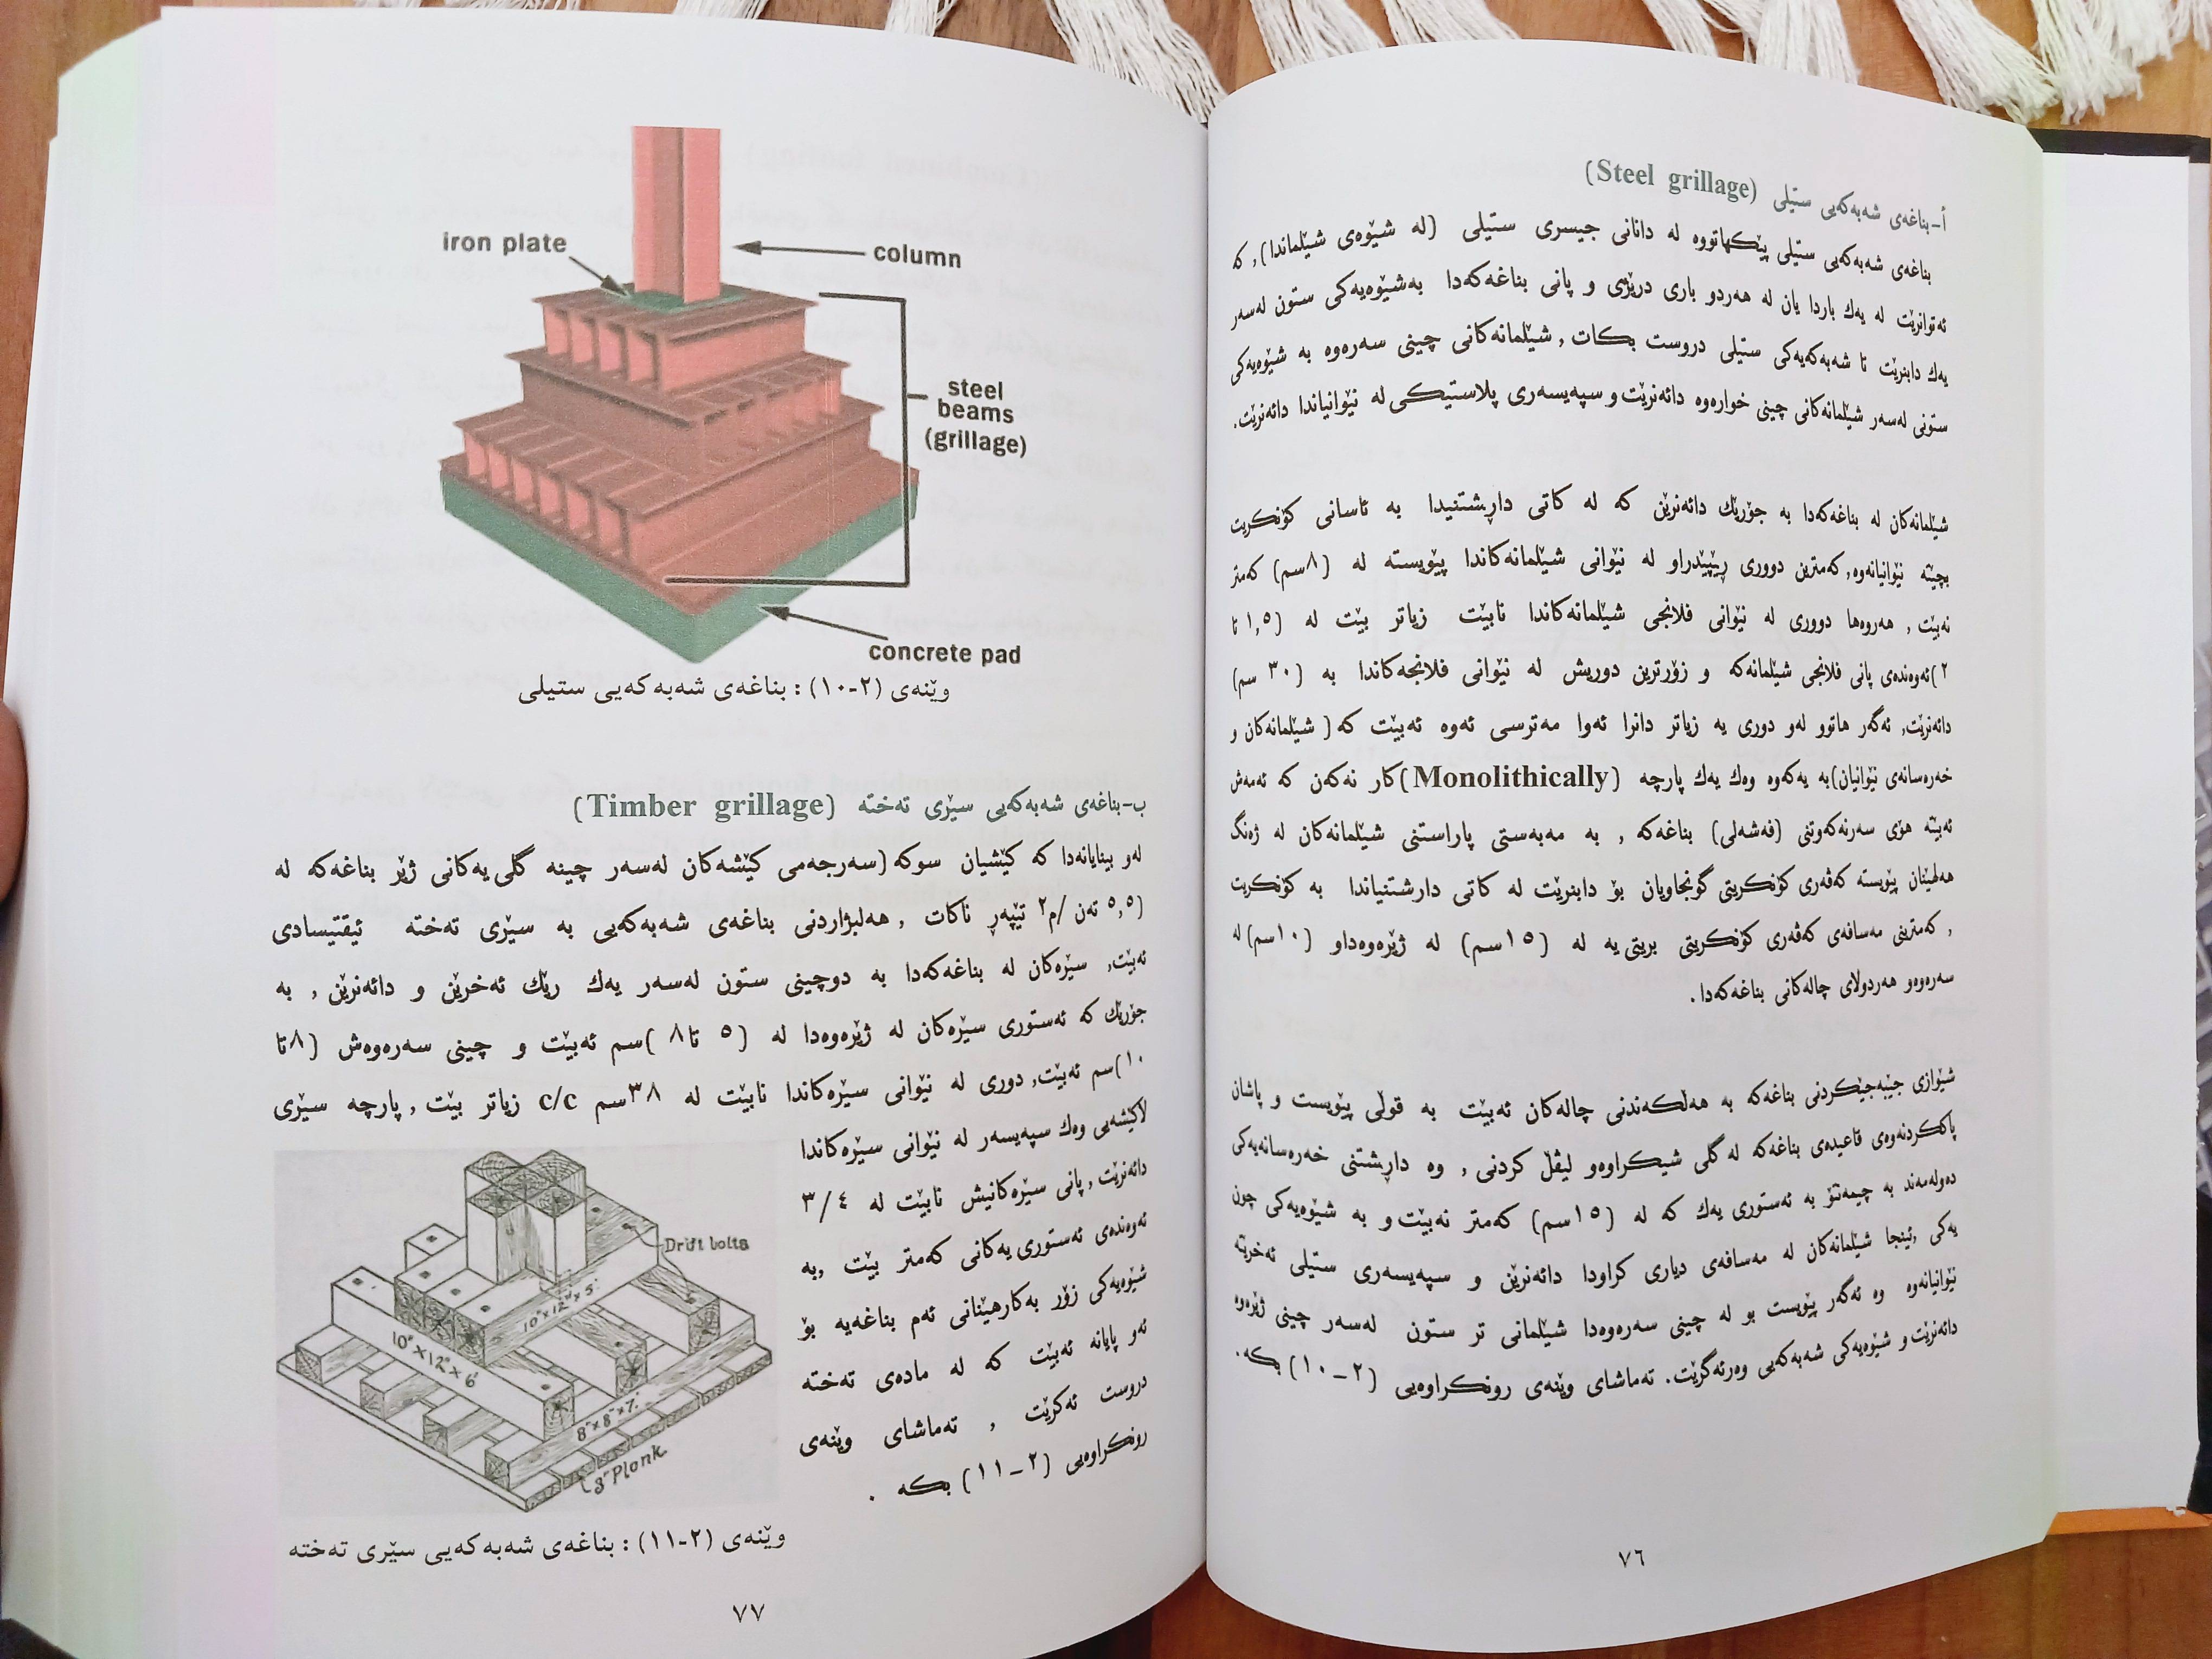 أ-بناغەی شەبەکەیی ستیلی (Steel grillage)
بناغەی شەبەکەیی ستیلی پێکهاتووە لە دانانی جیسری ستیلی (لە شێوەی شیلماندا), کە
ئەتوانرێت لە یەك باردا یان لە هەردو باری درێژی و پانی بناغەکەدا بەشێوەیەکی ستون لەسەر
یەك دابنرێت تا شەبەکەیەکی ستیلی دروست بکات, شیلمانەکانی چینی سەرەوە بە شێوەیەکی
ستونی لەسەر شیلمانەکانی چینی خوارەوە دائەنرێت و سپەیسەری پلاستیکی لە نێوانیاندا دائەنرێت.
شیلمانەکان لە بناغەکەدا بە جۆرێك دائەنرێن کە لە کاتی داڕشتنیدا بە ئاسانی کۆنکریت
بچێتە نێوانیانەوە, کەمترین دووری ڕێپێدراو لە نێوانی شیلمانەکاندا پێویستە لە (٨سم) کەمتر
نەبێت , هەروەها دووری لە نێوانی فلانجی شیلمانەکاندا نابێت زیاتر بێت لە (١,٥ تا
٢)ئەوەندەی پانی فلانجی شیلمانەکە و زۆرترین دوریش لە نێوانی فلانجەکاندا بە (٣٠ سم)
دائەنرێت, ئەگەر هاتوو لەو دوری یە زیاتر دانرا ئەوا مەترسی ئەوە ئەبێت کە ( شیلمانەکان و
خەرەسانەی نێوانیان)بە یەکەوە وەك یەك پارچە (Monolithically)کار نەکەن کە ئەمەش
ئەبێتە هۆی سەرنەکەوتنی (فەشەلی) بناغەکە , بە مەبەستی پاراستنی شیلمانەکان لە ژەنگ
هەلهێنان پێویستە کەڤەری کۆنکریتی گونجاویان بۆ دابنرێت لە کاتی دارشتنیاندا بە کۆنکریت
, کەمترینی مەسافەی کەڤەری کۆنکریتی بریتی یە لە (١٥سم) لە ژێرەوەداو (١٠سم) لە
سەرەوەو هەردولای چالەکانی بناغەکەدا.
شێوازی جێبەجێکردنی بناغەکە بە هەڵکەندنی چالەکان ئەبێت بە قوڵی پێویست و پاشان
پاککردنەوەی قاعیدەی بناغەکە لە گلی شیکراوەو لیڤڵ کردنی , وە داڕشتنی خەرەسانەیەکی
دەولەمەند بە چیمەنتۆ بە ئەستوری یەك کە لە (١٥سم) کەمتر نەبێت و بە شێوەیەکی چون
یەکی ,ئینجا شیلمانەکان لە مەسافەی دیاری کراودا دائەنرێن و سپەیسەری ستیلی ئەخرێتە
نێوانیانەوە وە ئەگەر پێویست بو لە چینی سەرەوەدا شیلمانی تر ستون لەسەر چینی ژێرەوە
دائەنرێت و شێوەیەکی شەبەکەیی وەرئەگرێت. تەماشای وێنەی رونکراوەیی (٢-١٠) بکە.
٧٦
iron plate
column
steel
beams
(grillage)
concrete pad
وێنەی (٢-١٠) : بناغەی شەبەکەیی ستیلی
ب-بناغەی شەبەکەیی سێڕی تەختە (Timber grillage)
لەو بینایانەدا کە کێشیان سوکە (سەرجەمی کێشەکان لەسەر چینە گلی یەکانی ژێر بناغەکە لە
(٥,٥ تەن /م٢ تێپەڕ ناکات , هەلبژاردنی بناغەی شەبەکەیی بە سێڕی تەختە ئیقتیسادی
ئەبێت, سێڕەکان لە بناغەکەدا بە دوچینی ستون لەسەر یەك رێك ئەخرێن و دائەنرێن , بە
جۆرێك کە ئەستوری سێڕەکان لە ژێرەوەدا لە (٥ تا٨ )سم ئەبێت و چینی سەرەوەش (٨تا
١٠)سم ئەبێت, دوری لە نێوانی سێڕەکاندا نابێت لە ٣٨سم c/c زیاتر بێت , پارچە سێڕی
لاکێشەیی وەك سپەیسەر لە نێوانی سێڕەکاندا
دائەنرێت , پانی سێڕەکانیش نابێت لە ٣/٤
ئەوەندەی ئەستوری یەکانی کەمتر بێت ,بە
شێوەیەکی زۆر بەکارهێنانی ئەم بناغەیە بۆ
ئەو پایانە ئەبێت کە لە مادەی تەختە
دروست ئەکرێت , تەماشای وێنەی
رونکراوەیی (٢-١١) بکە .
Drift bolts
10"×12"×5'
10"×12"×6'
8"×8"×7'
3"Plank
وێنەی (٢-١١) : بناغەی شەبەکەیی سێڕی تەختە
٧٧